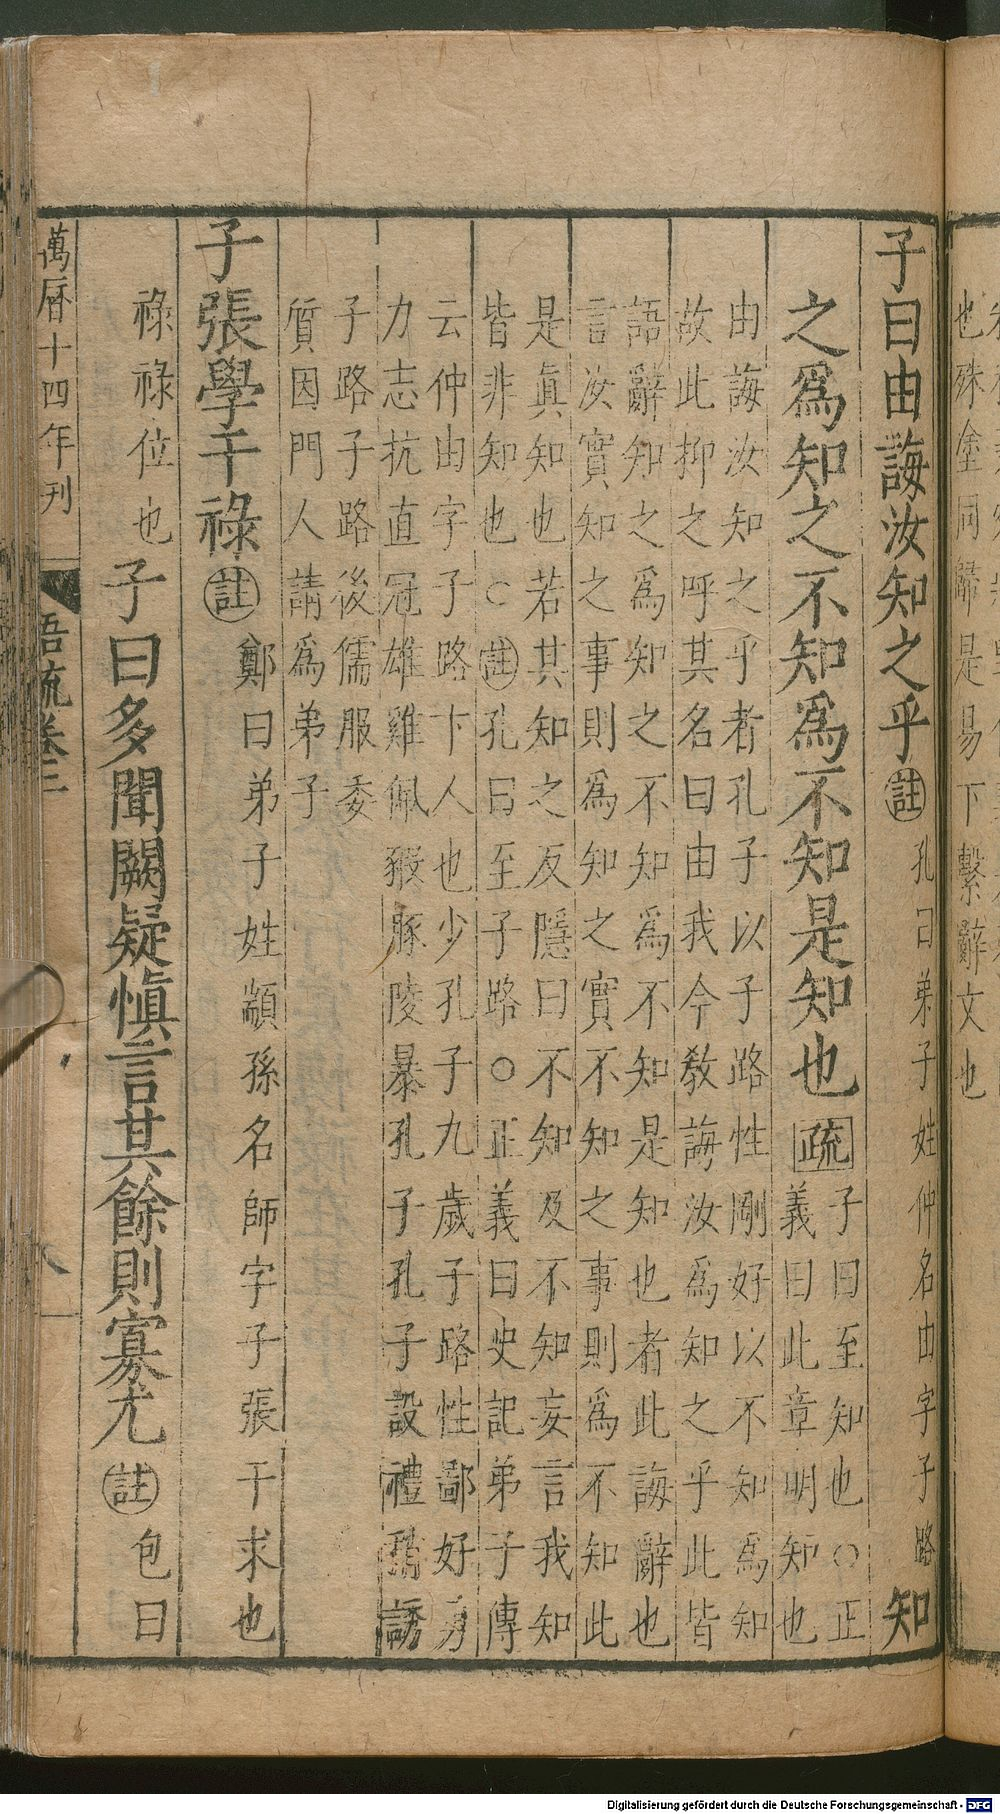 子曰由誨汝知之乎註孔曰弟子姓仲名由字子路知
之爲知之不知爲不知是知也疏子曰至知也○正
義曰此章明知也
由誨汝知之乎者孔子以子路性剛好以不知爲知
故此抑之呼其名曰由我今教誨汝爲知之乎此皆
語辭知之爲知之不知爲不知是知也者此誨辭也
言汝實知之事則爲知之實不知之事則爲不知此
是眞知也若其知之反隱曰不知及不知妄言我知
皆非知也○註孔曰至子路○正義曰史記弟子傳
云仲由字子路卞人也少孔子九歲子路性鄙好勇
力志抗直冠雄雞佩猳豚陵暴孔子孔子設禮稍誘
子路子路後儒服委
質因門人請爲弟子
子張學干祿註鄭曰弟子姓顓孫名師字子張干求也
祿祿位也子曰多聞闕疑慎言其餘則寡尤註包曰
萬曆十四年刊
語疏卷二
八
也殊塗同歸是易下繫辭文也
Digitalisierung gefördert durch die Deutsche Forschungsgemeinschaft - DFG